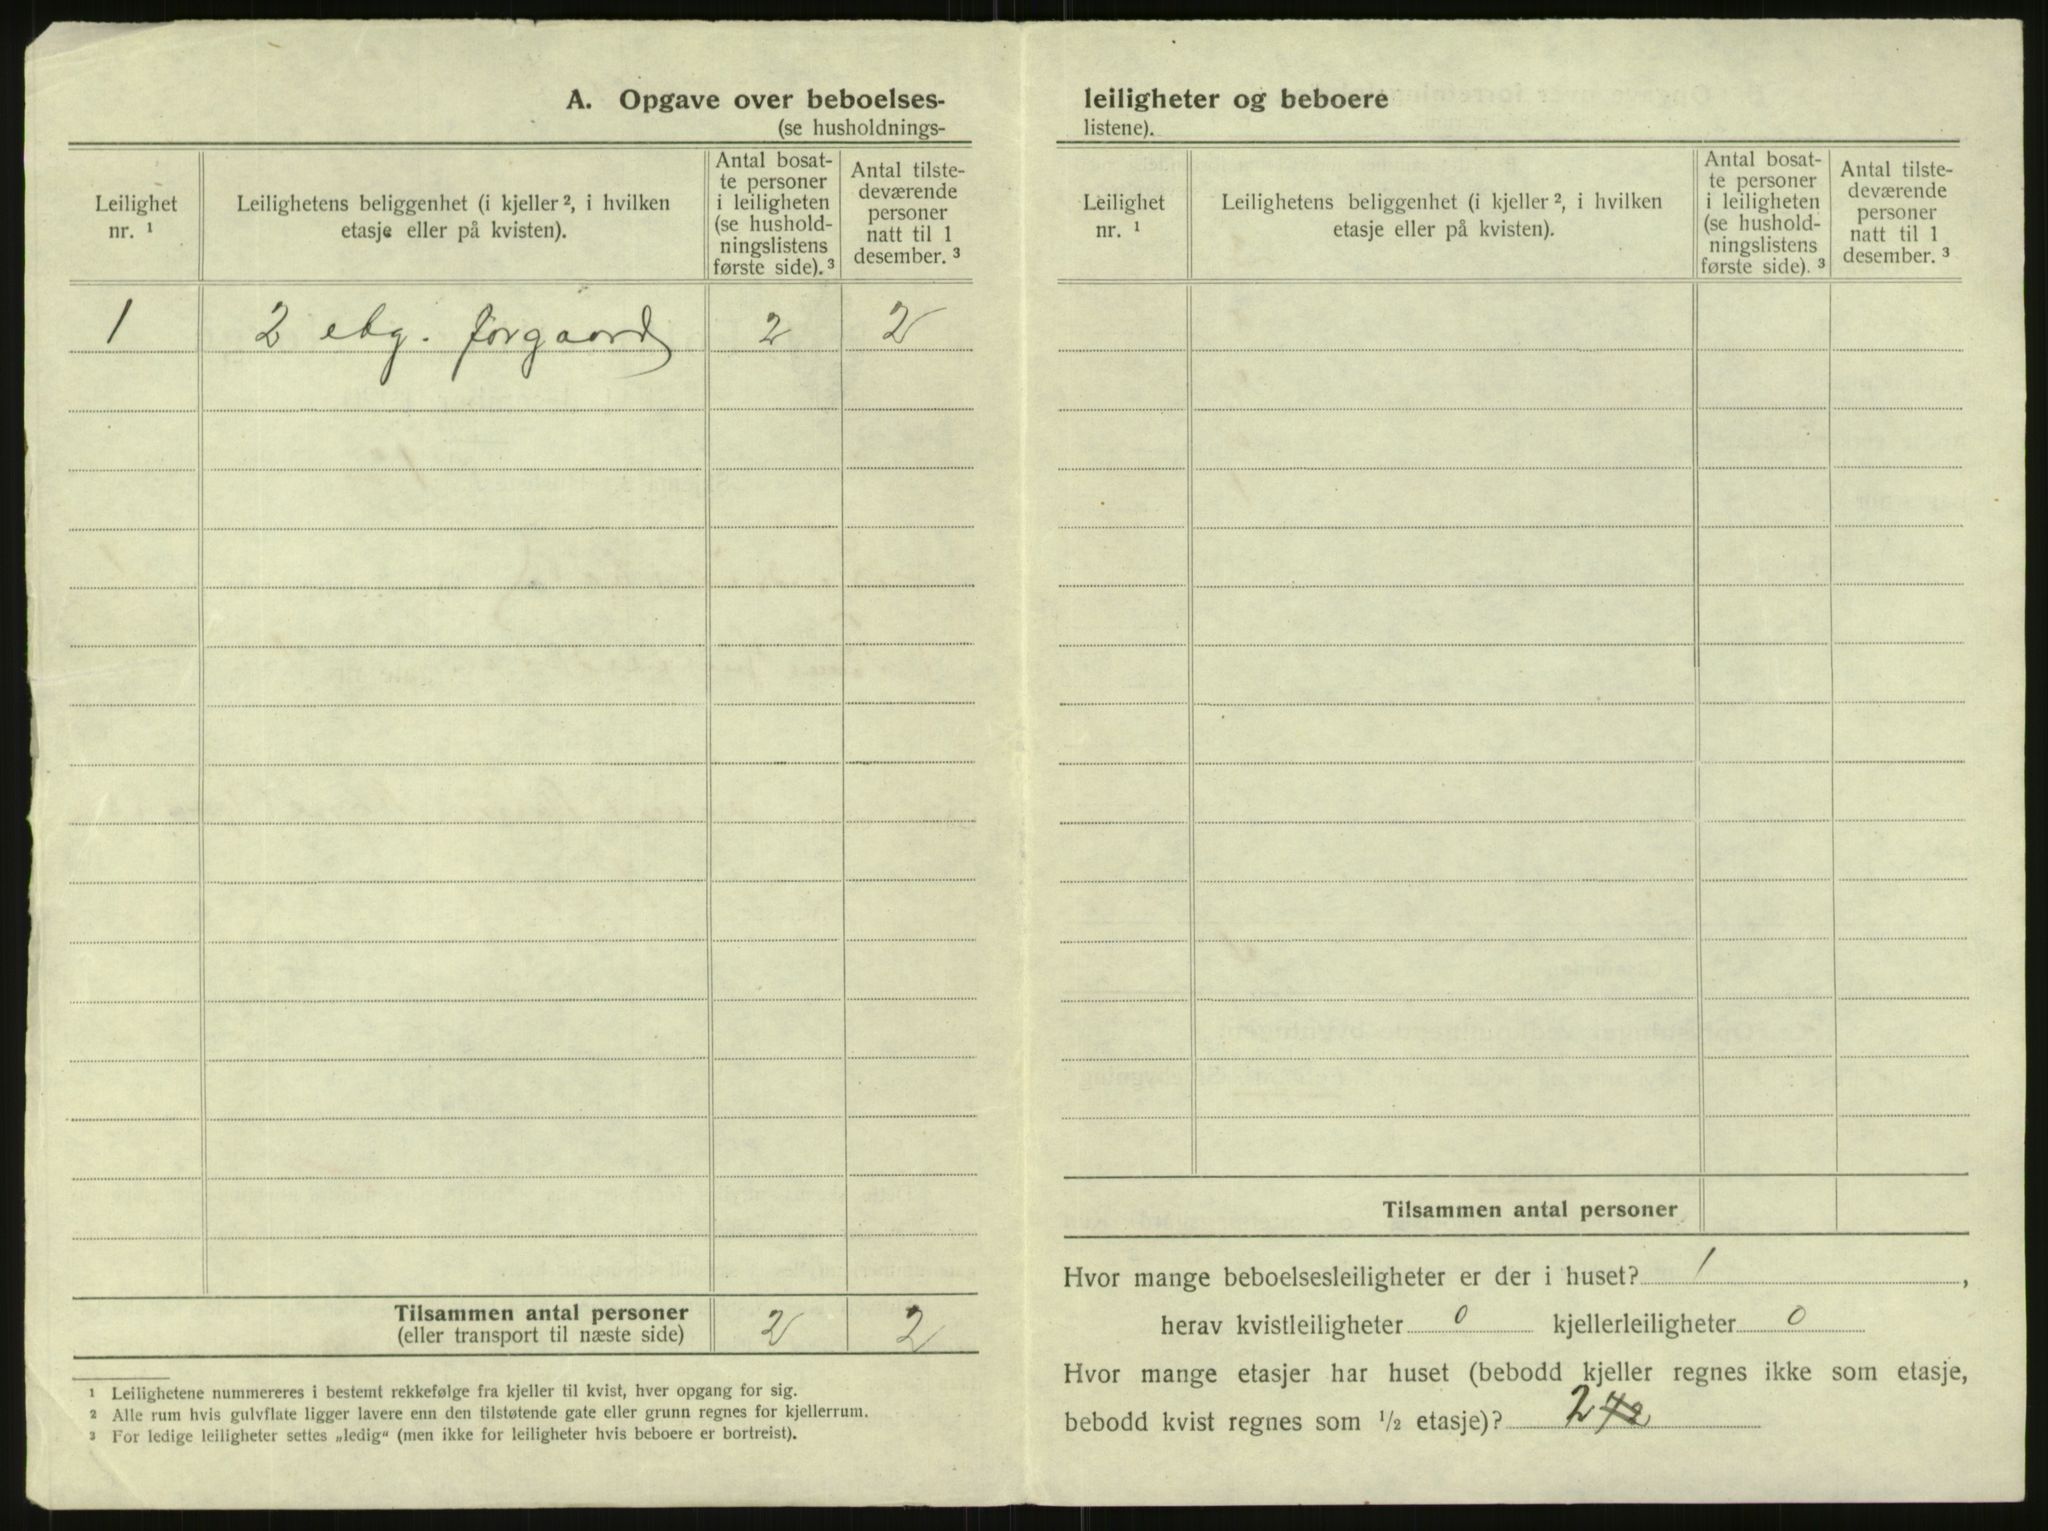 A. Opgave over beboelses-
(se husholdnings-
Leilighet
nr. ¹
Leilighetens beliggenhet (i kjeller ², i hvilken
etasje eller på kvisten).
Antal bosat-
te personer
i leiligheten
(se hushold-
ningslistens
første side). ³
Antal tilste-
deværende
personer
natt til 1
desember. ³
1 2 etg. forgaard 2 2
Tilsammen antal personer
(eller transport til næste side) 2 2
¹ Leilighetene nummereres i bestemt rekkefølge fra kjeller til kvist, hver opgang for sig.
² Alle rum hvis gulvflate ligger lavere enn den tilstøtende gate eller grunn regnes for kjellerrum.
³ For ledige leiligheter settes „ledig“ (men ikke for leiligheter hvis beboere er bortreist).
leiligheter og beboere
listene).
Leilighet
nr. ¹
Leilighetens beliggenhet (i kjeller ², i hvilken
etasje eller på kvisten).
Antal bosat-
te personer
i leiligheten
(se hushold-
ningslistens
første side). ³
Antal tilste-
deværende
personer
natt til 1
desember. ³
Tilsammen antal personer
Hvor mange beboelsesleiligheter er der i huset? 1 ,
herav kvistleiligheter 0 kjellerleiligheter 0
Hvor mange etasjer har huset (bebodd kjeller regnes ikke som etasje,
bebodd kvist regnes som ½ etasje)? 2